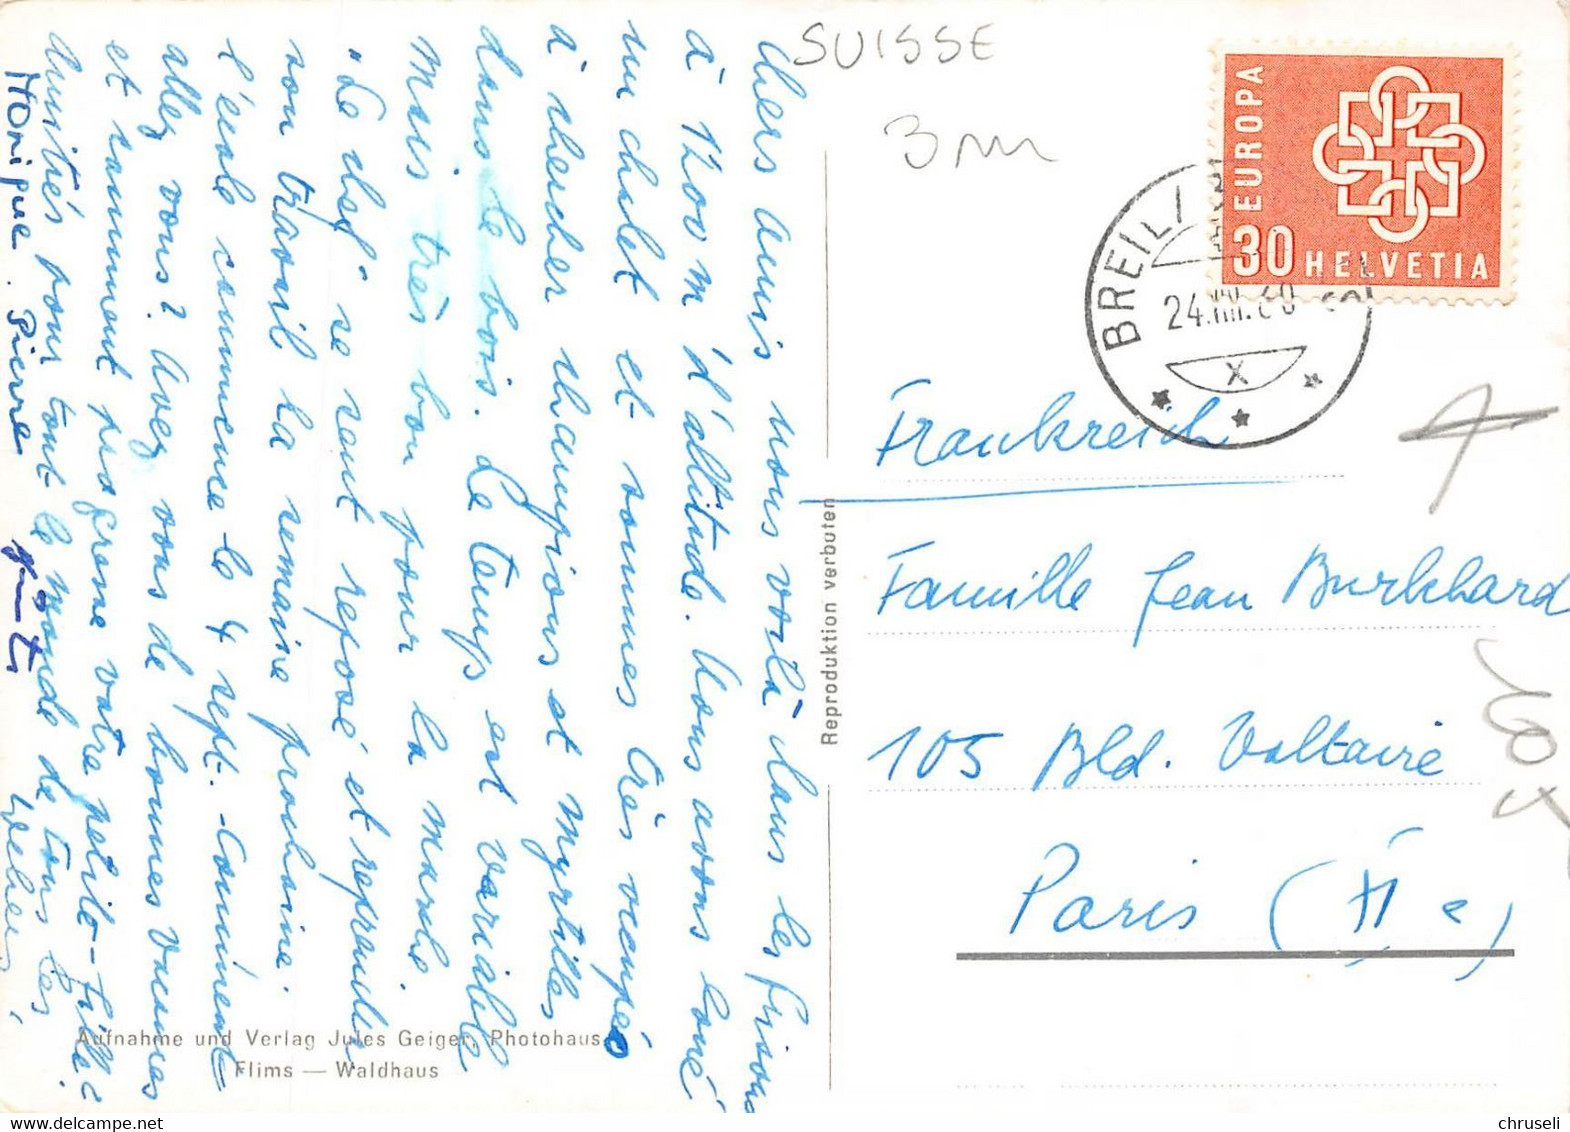 Chers amis nous voilà dans les Grisons
à 1200 m d'altitude. Nous avons loué
un chalet et sommes très occupés
à chercher champignons et myrtilles
dans le bois. Le temps est variable
mais très bon pour la marche.
"Le chef" se sent reposé et reprendra
son travail la semaine prochaine.
l'école commence le 4 sept. Comment
allez vous? Avez vous de bonnes vacances
et comment progresse votre petite-fille?
Amitiés pour tout le monde de tous les
Weber
Monique. Pierre
SUISSE
3 m
EUROPA
30 HELVETIA
BREIL/
24.VIII.60
X
Frankreich
Famille Jean Burkhard
105 Bld. Voltaire
Paris (XI e)
105
Reproduktion verbuten
Aufnahme und Verlag Jules Geiger, Photohaus
Flims — Waldhaus
chruseli